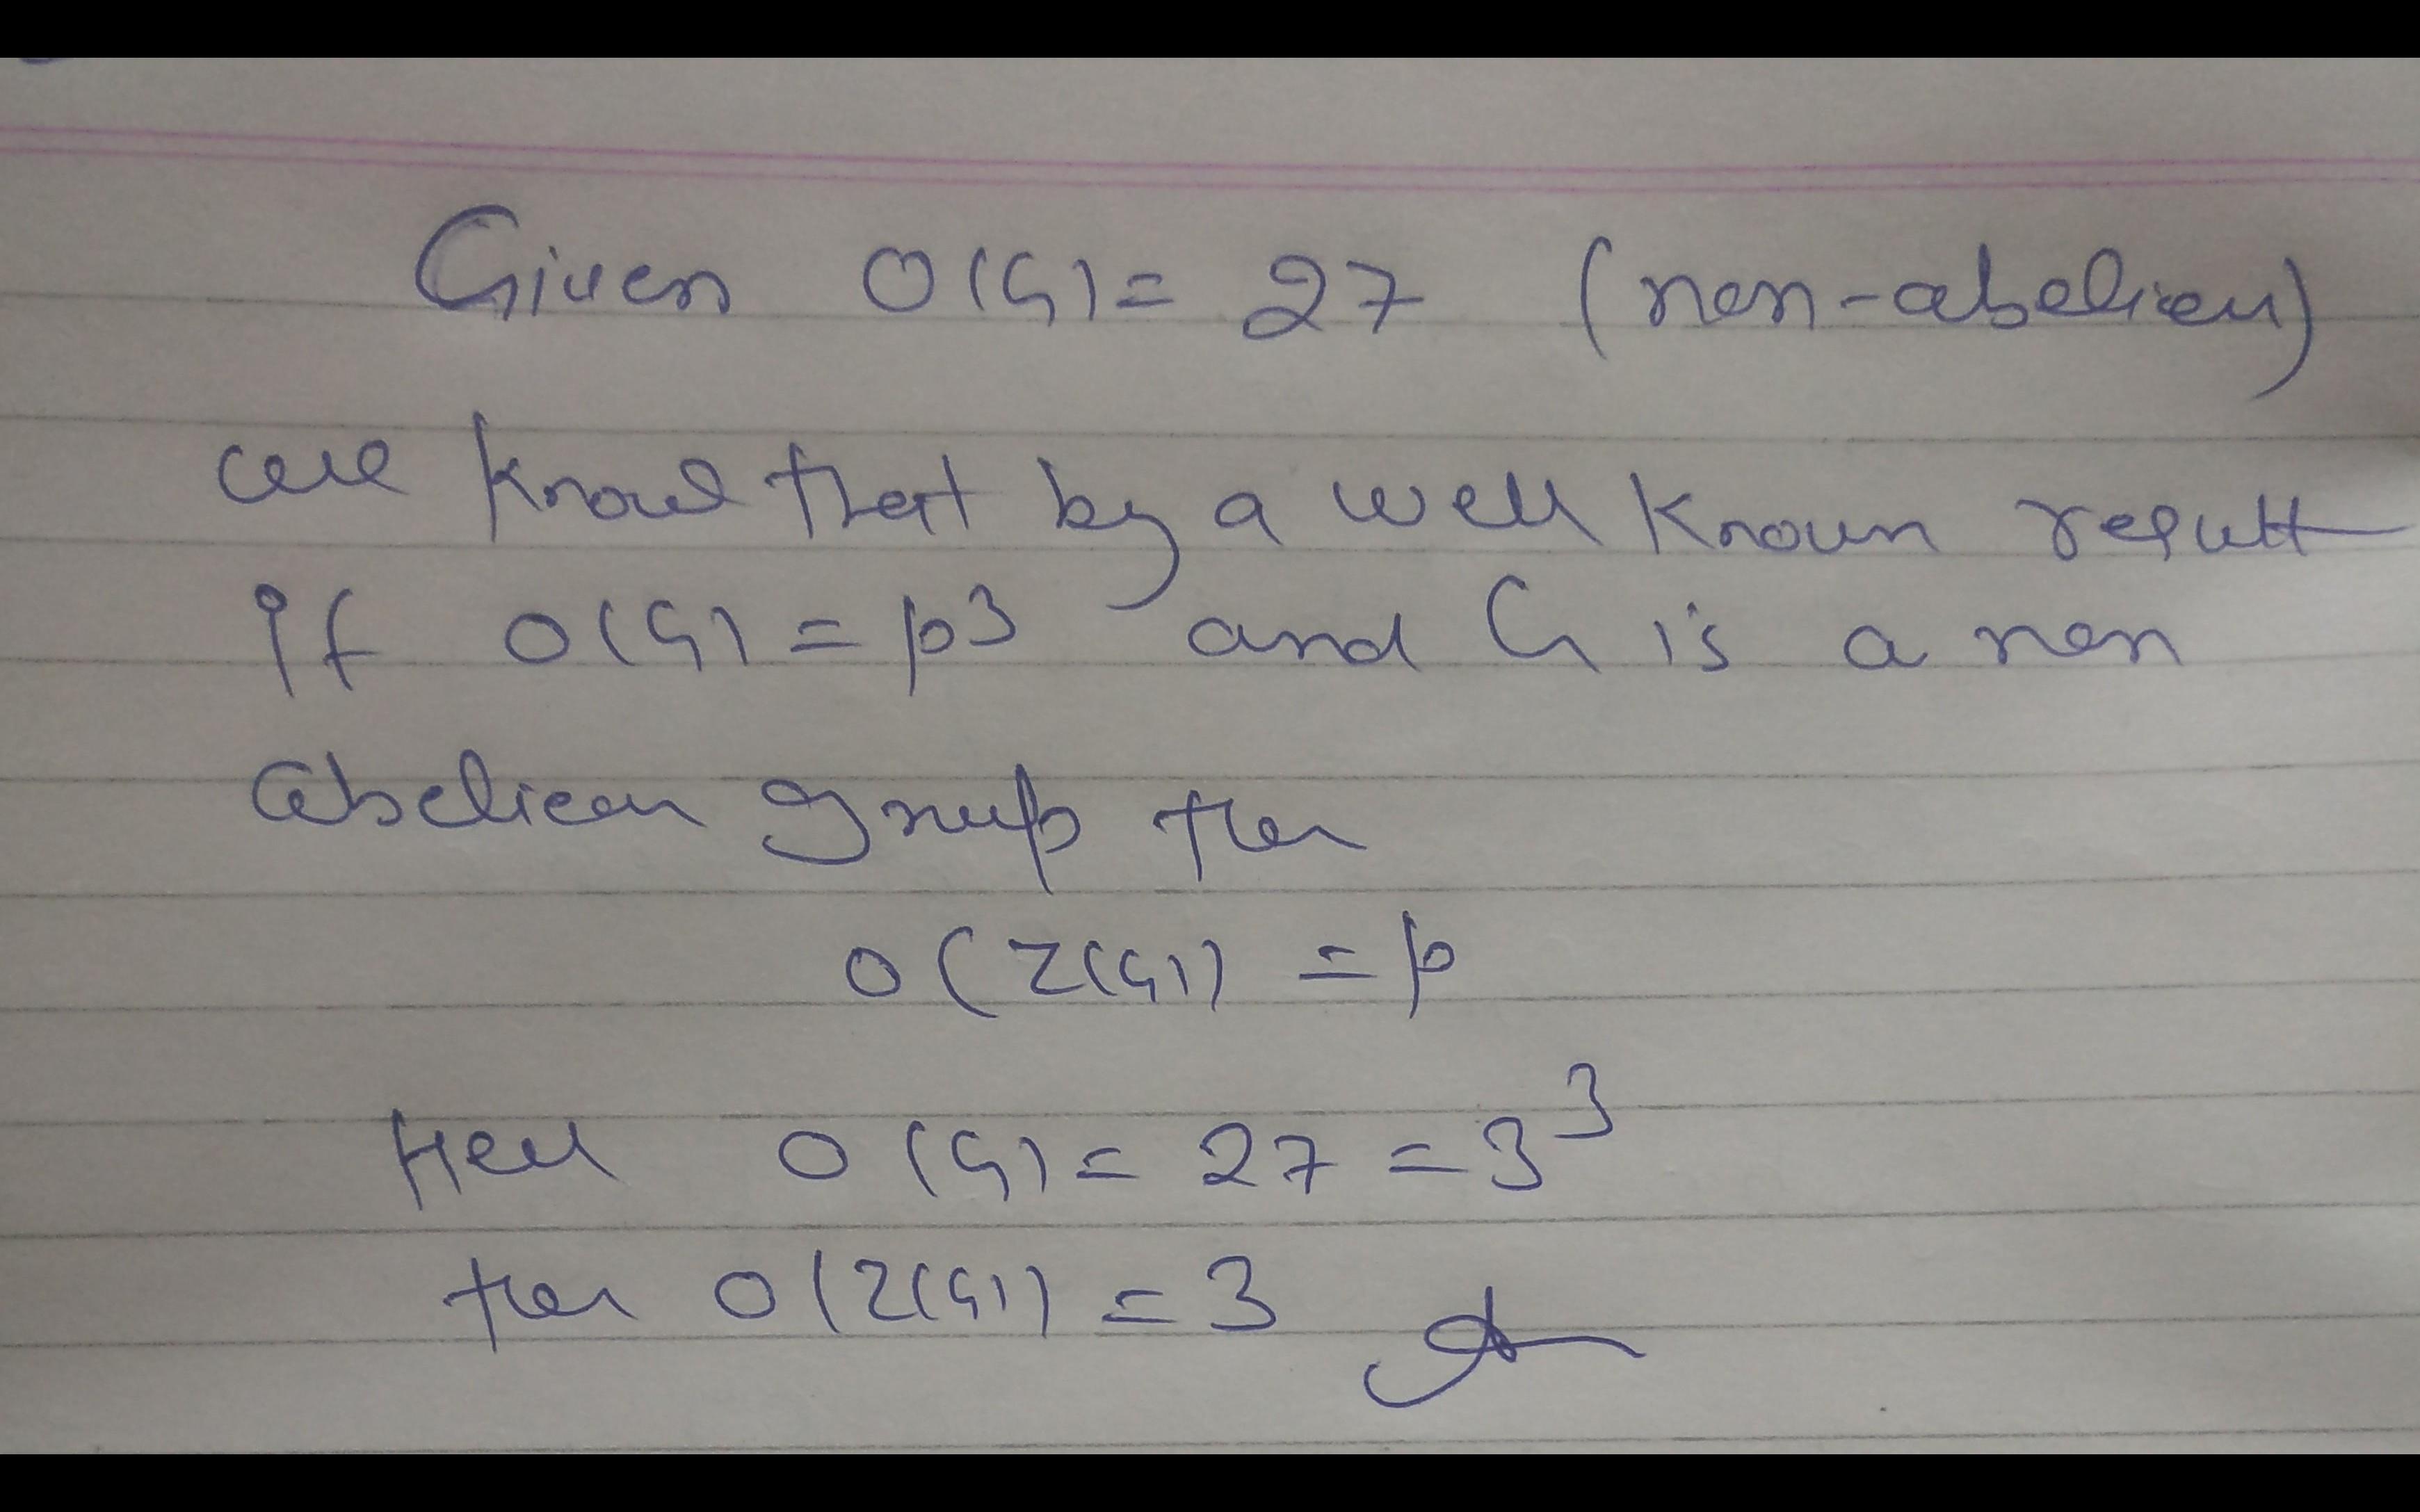 Given O(G) = 27 (non-abelian)
we know that by a well known result
if O(G) = p3 and G is a non
abelian group then
O(Z(G)) = p
Here O(G) = 27 = 3³
then O(Z(G)) = 3